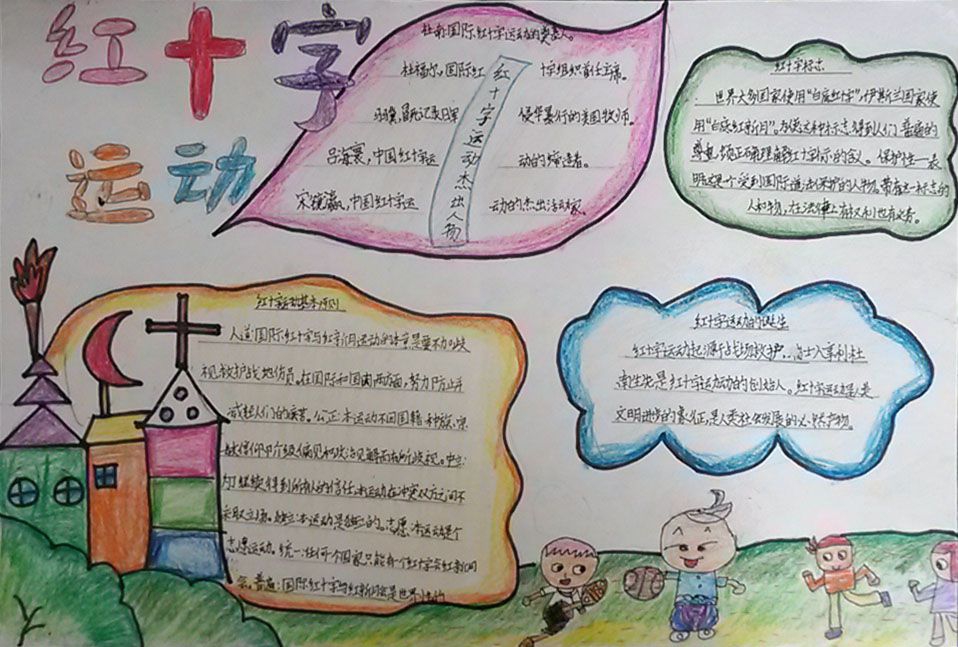 红十字
运动
杜南:国际红十字运动的奠基人。
杜福尔,国际红十字组织首任主席。
冯骥,记录日军侵华暴行的美国牧师。
吕海寰,中国红十字运动的缔造者。
宋铭瀛,中国红十字运动的杰出活动家。
红十字运动杰出人物
红十字标志
世界大多国家使用“白底红十字”,伊斯兰国家使
用“白底红新月”。为使这种标志得到人们普遍的
尊重,须正确理解红十字标的含义。保护性—表
明这是个受到国际道法保护的人物。带有这一标志的
人和物,在法律上有权利也有义务。
红十字运动基本原则
人道:国际红十字与红新月运动的本意是要不加歧
视救护战地伤员。在国际和国内两方面,努力防止并
减轻人们的疼苦。公正:本运动不因国籍、种族、宗
教信仰、阶级偏见和政治见解而有所歧视。中立:
为了继续得到所有人的信任,本运动在冲突双方之间不
采取立场。独立:本运动是独立的。志愿:本运动是个
志愿运动。统一:任何个国家只能有一个红十字会红新月
会。普遍:国际红十字与红新月会是世界性的
红十字运动的诞生
红十字运动起源于战场救护。瑞士人亨利杜
南先生是红十字运动的创始人。红十字运动是人类
文明进步的象征,是人类社会发展的必然产物。